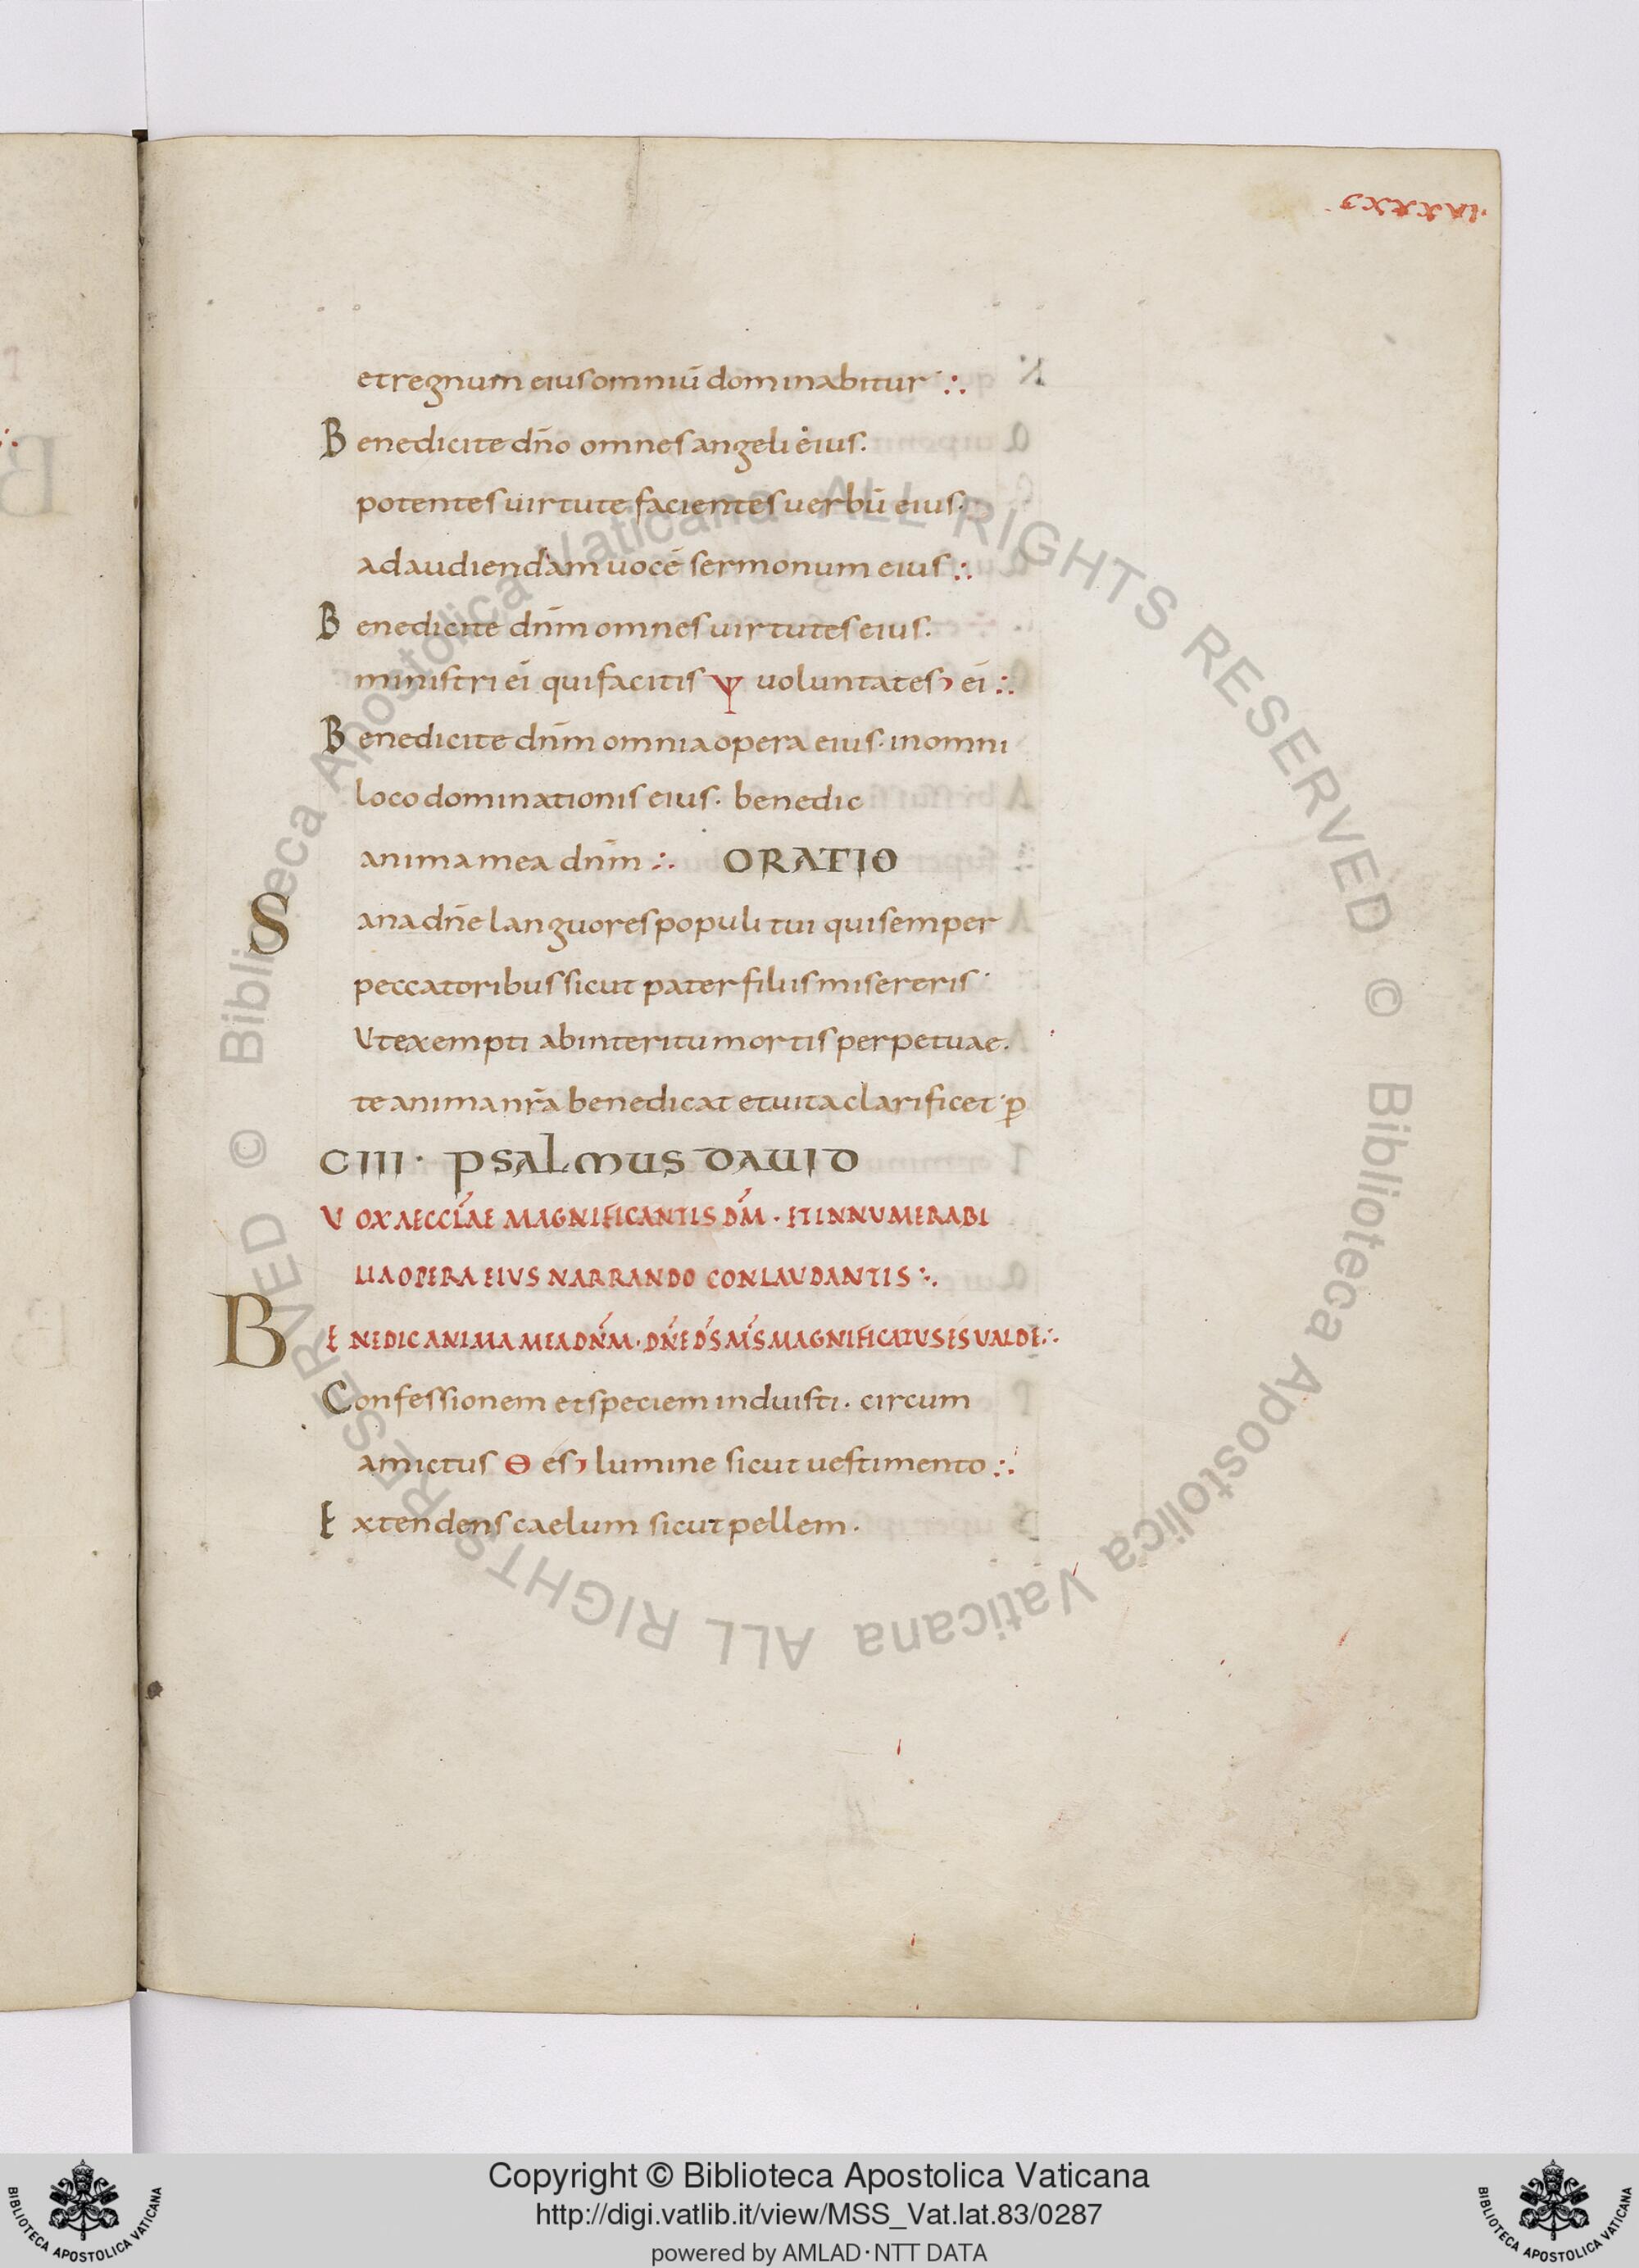 ·cxxxxvi·
et regnum eius omniū dominabitur ∴
Benedicite dn̄o omnes angeli eius.
potentes uirtute facientes uerbū eius.
ad audiendam uocē sermonum eius ∴
Benedicite dn̄m omnes uirtutes eius.
ministri eī qui facitis Ψ uoluntates eī ∴
Benedicite dn̄m omnia opera eius · in omni
loco dominationis eius · benedic
anima mea dn̄m ∴ ORATIO
Sana dn̄e languores populi tui qui semper
peccatoribus sicut pater filiis misereris
Ut exempti ab interitu mortis perpetuae.
te anima nr̄a benedicat et uita clarificet · p̄
CIII · PSALMUS DAUID
VOX AECCLĀE MAGNIFICANTIS DM̄ · ET INNUMERABI
LIA OPERA EIUS NARRANDO CONLAUDANTIS ∴
BENEDIC ANIMA MEA DN̄M · DN̄E DS̄ MS̄ MAGNIFICATUS ES UALDE ∴
Confessionem et speciem induisti · circum
amictus Θ es lumine sicut uestimento ∴
Extendens caelum sicut pellem ·
© Biblioteca Apostolica Vaticana ALL RIGHTS RESERVED © Biblioteca Apostolica Vaticana ALL RIGHTS RESERVED
Copyright © Biblioteca Apostolica Vaticana
http://digi.vatlib.it/view/MSS_Vat.lat.83/0287
powered by AMLAD·NTT DATA
BIBLIOTECA APOSTOLICA VATICANA
BIBLIOTECA APOSTOLICA VATICANA